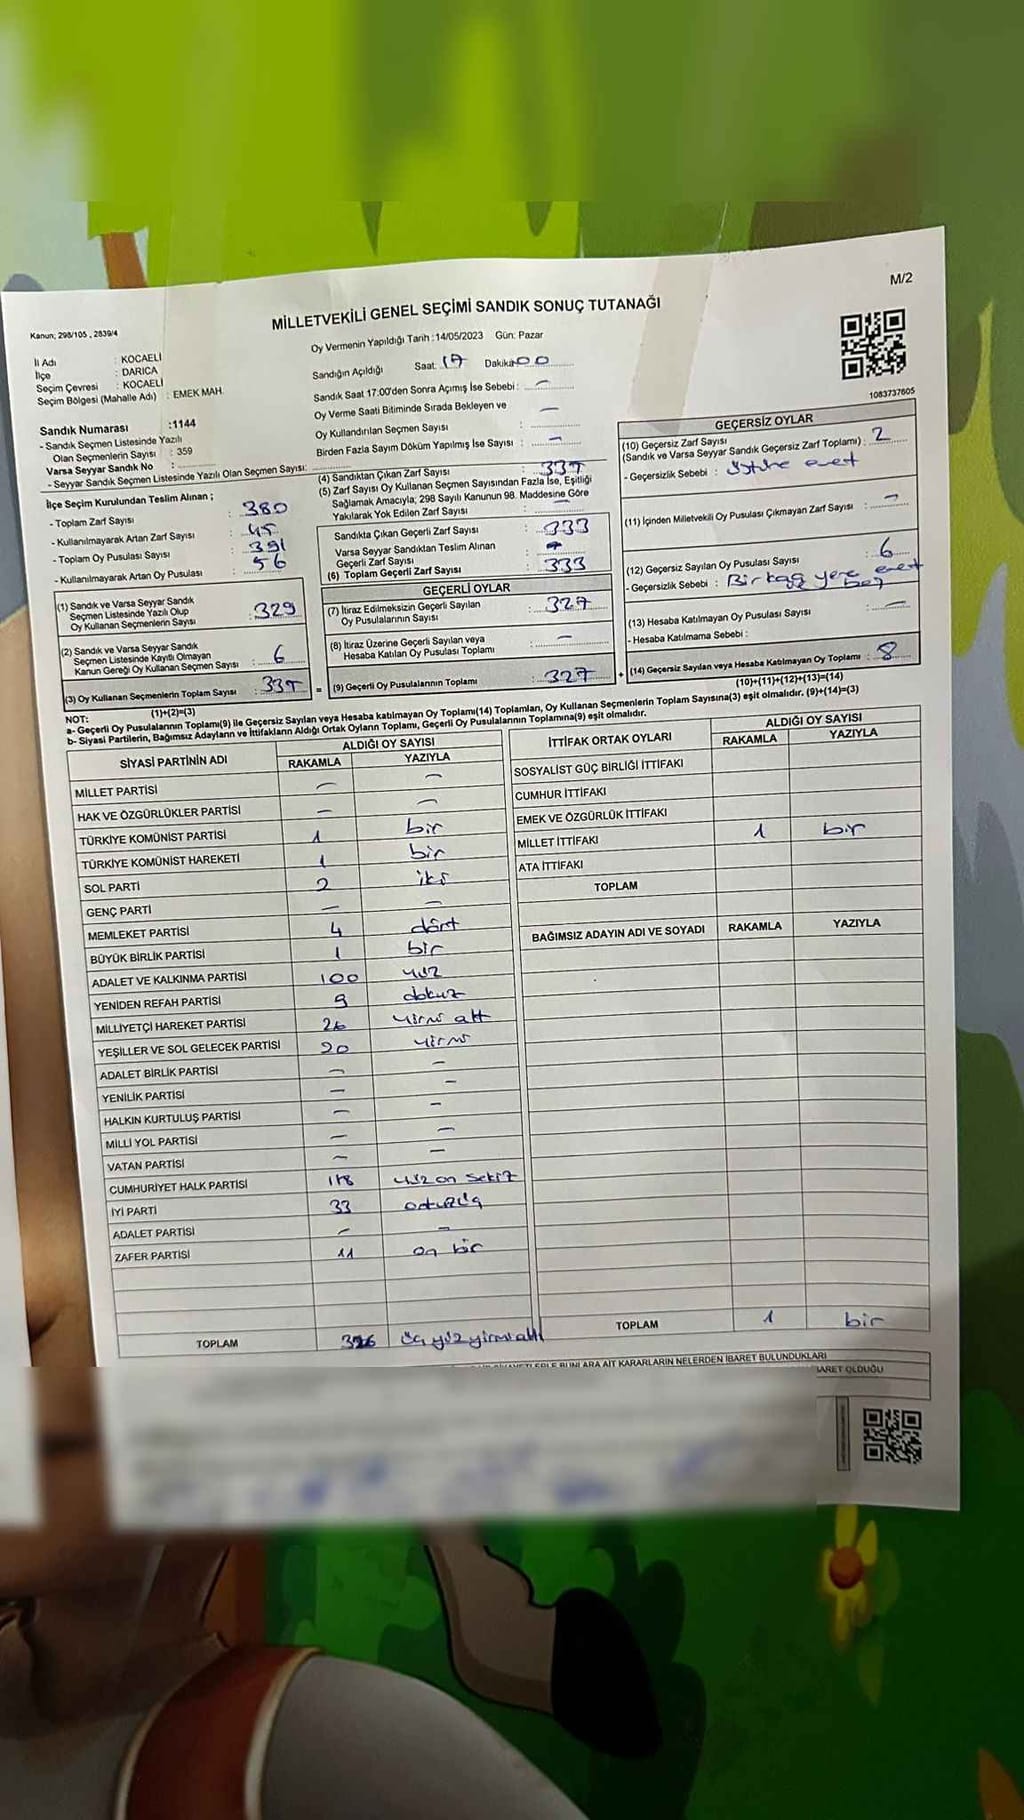 M/2
MİLLETVEKİLİ GENEL SEÇİMİ SANDIK SONUÇ TUTANAĞI
Kanun; 298/105 , 2839/4
Oy Vermenin Yapıldığı Tarih :14/05/2023 Gün: Pazar
İl Adı : KOCAELİ
İlçe : DARICA
Seçim Çevresi : KOCAELİ
Seçim Bölgesi (Mahalle Adı) : EMEK MAH.
Sandık Numarası :1144
- Sandık Seçmen Listesinde Yazılı
Olan Seçmenlerin Sayısı : 359
Varsa Seyyar Sandık No :
- Seyyar Sandık Seçmen Listesinde Yazılı Olan Seçmen Sayısı:
Sandığın Açıldığı Saat: 17 Dakika: 00
Sandık Saat 17.00'den Sonra Açımış İse Sebebi : —
Oy Verme Saati Bitiminde Sırada Bekleyen ve
Oy Kullandırılan Seçmen Sayısı : —
Birden Fazla Sayım Döküm Yapılmış İse Sayısı : —
1083737605
İlçe Seçim Kurulundan Teslim Alınan ;
- Toplam Zarf Sayısı : 380
- Kullanılmayarak Artan Zarf Sayısı : 45
- Toplam Oy Pusulası Sayısı : 391
- Kullanılmayarak Artan Oy Pusulası : 56
(1) Sandık ve Varsa Seyyar Sandık
Seçmen Listesinde Yazılı Olup
Oy Kullanan Seçmenlerin Sayısı : 329
(2) Sandık ve Varsa Seyyar Sandık
Seçmen Listesinde Kayıtlı Olmayan
Kanun Gereği Oy Kullanan Seçmen Sayısı : 6
(3) Oy Kullanan Seçmenlerin Toplam Sayısı : 335
(1)+(2)=(3)
(4) Sandıktan Çıkan Zarf Sayısı : 335
(5) Zarf Sayısı Oy Kullanan Seçmen Sayısından Fazla İse, Eşitliği
Sağlamak Amacıyla; 298 Sayılı Kanunun 98. Maddesine Göre
Yakılarak Yok Edilen Zarf Sayısı : —
Sandıkta Çıkan Geçerli Zarf Sayısı : 333
Varsa Seyyar Sandıktan Teslim Alınan
Geçerli Zarf Sayısı :
(6) Toplam Geçerli Zarf Sayısı : 333
GEÇERLİ OYLAR
(7) İtiraz Edilmeksizin Geçerli Sayılan
Oy Pusulalarının Sayısı : 327
(8) İtiraz Üzerine Geçerli Sayılan veya
Hesaba Katılan Oy Pusulası Toplamı : —
= (9) Geçerli Oy Pusulalarının Toplamı : 327
GEÇERSİZ OYLAR
(10) Geçersiz Zarf Sayısı
(Sandık ve Varsa Seyyar Sandık Geçersiz Zarf Toplamı) : 2
- Geçersizlik Sebebi : evet
(11) İçinden Milletvekili Oy Pusulası Çıkmayan Zarf Sayısı : —
(12) Geçersiz Sayılan Oy Pusulası Sayısı : 6
- Geçersizlik Sebebi : Birkaç yere evet
(13) Hesaba Katılmayan Oy Pusulası Sayısı : —
- Hesaba Katılmama Sebebi :
+ (14) Geçersiz Sayılan veya Hesaba Katılmayan Oy Toplamı : 8
(10)+(11)+(12)+(13)=(14)
NOT:
a- Geçerli Oy Pusulalarının Toplamı(9) ile Geçersiz Sayılan veya Hesaba katılmayan Oy Toplamı(14) Toplamları, Oy Kullanan Seçmenlerin Toplam Sayısına(3) eşit olmalıdır. (9)+(14)=(3)
b- Siyasi Partilerin, Bağımsız Adayların ve İttifakların Aldığı Ortak Oyların Toplamı, Geçerli Oy Pusulalarının Toplamına(9) eşit olmalıdır.
SİYASİ PARTİNİN ADI ALDIĞI OY SAYISI
RAKAMLA YAZIYLA
MİLLET PARTİSİ — —
HAK VE ÖZGÜRLÜKLER PARTİSİ — —
TÜRKİYE KOMÜNİST PARTİSİ 1 bir
TÜRKİYE KOMÜNİST HAREKETİ 1 bir
SOL PARTİ 2 iki
GENÇ PARTİ — —
MEMLEKET PARTİSİ 4 dört
BÜYÜK BİRLİK PARTİSİ 1 bir
ADALET VE KALKINMA PARTİSİ 100 yüz
YENİDEN REFAH PARTİSİ 9 dokuz
MİLLİYETÇİ HAREKET PARTİSİ 26 yirmi altı
YEŞİLLER VE SOL GELECEK PARTİSİ 20 yirmi
ADALET BİRLİK PARTİSİ — —
YENİLİK PARTİSİ — —
HALKIN KURTULUŞ PARTİSİ — —
MİLLİ YOL PARTİSİ — —
VATAN PARTİSİ — —
CUMHURİYET HALK PARTİSİ 118 yüz on sekiz
İYİ PARTİ 33 otuzüç
ADALET PARTİSİ — —
ZAFER PARTİSİ 11 on bir
TOPLAM 326 üç yüz yirmi altı
İTTİFAK ORTAK OYLARI ALDIĞI OY SAYISI
RAKAMLA YAZIYLA
SOSYALİST GÜÇ BİRLİĞİ İTTİFAKI
CUMHUR İTTİFAKI
EMEK VE ÖZGÜRLÜK İTTİFAKI
MİLLET İTTİFAKI 1 bir
ATA İTTİFAKI
TOPLAM
BAĞIMSIZ ADAYIN ADI VE SOYADI RAKAMLA YAZIYLA
TOPLAM 1 bir
BUNLARA AİT KARARLARIN NELERDEN İBARET BULUNDUKLARI
İBARET OLDUĞU